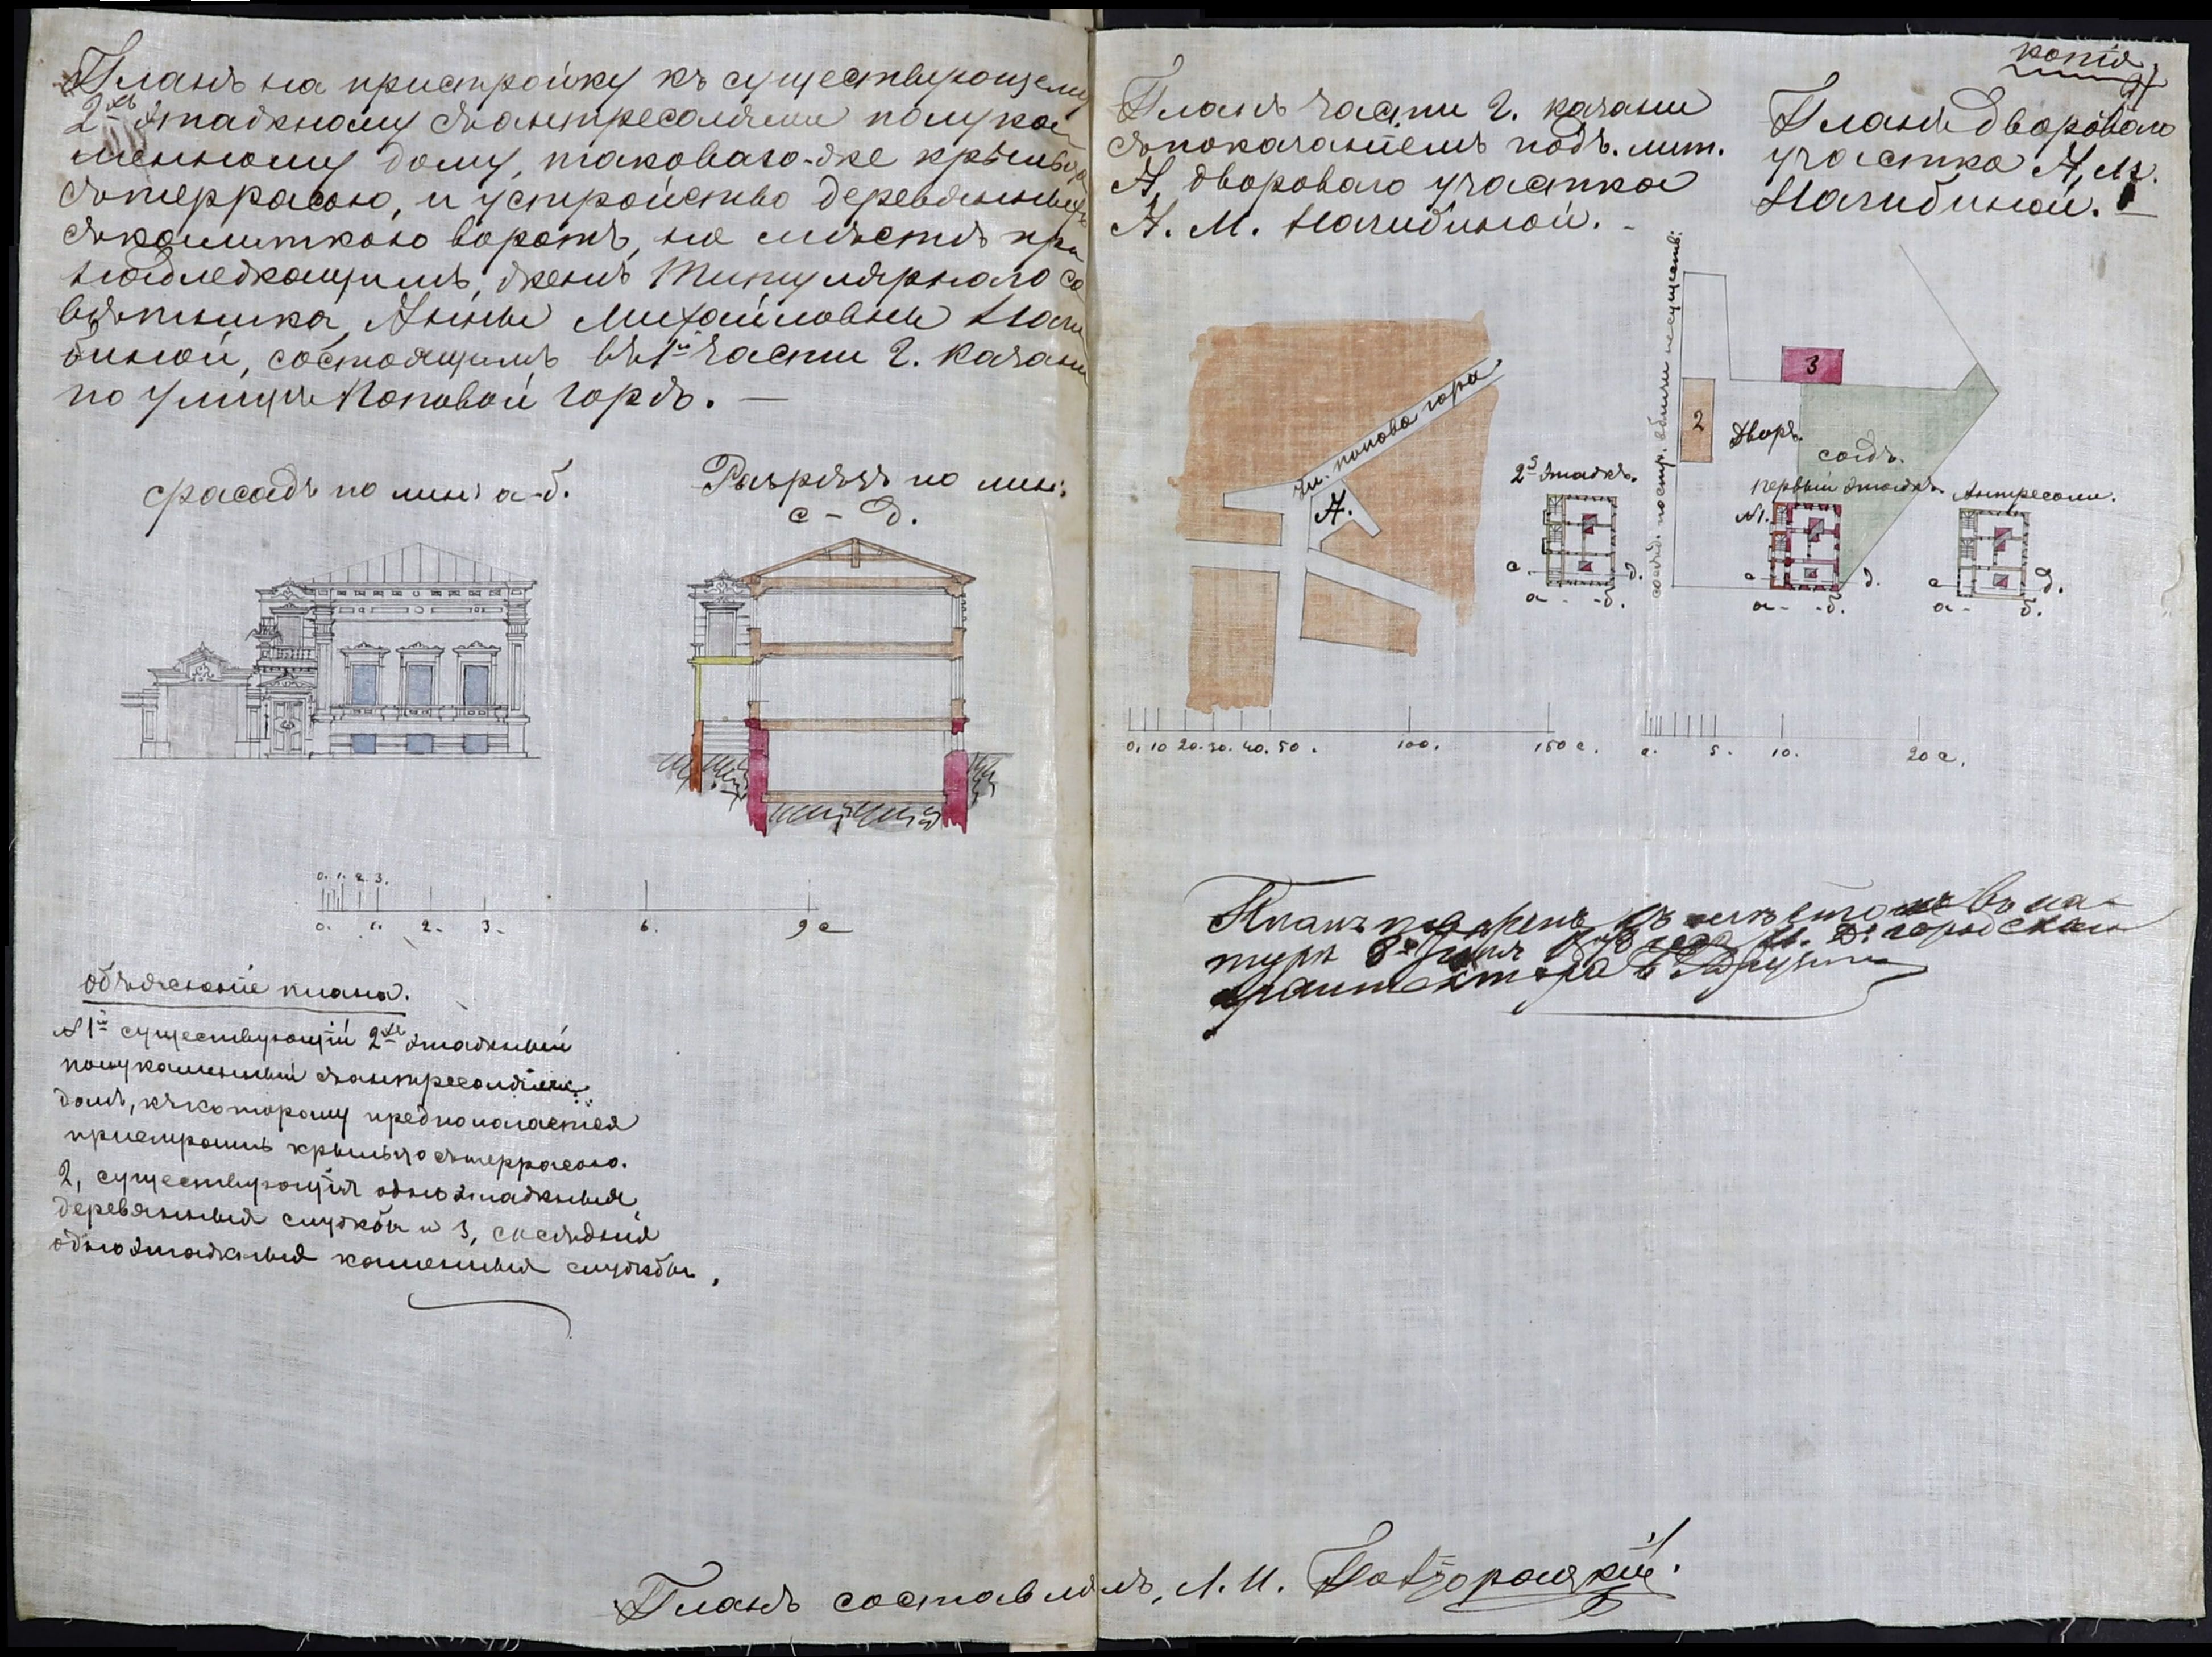 Планъ на пристройку къ существующему
2хъ этажному съ антресолями полука
менному дому, таковаго-же крыльца
съ террасою, и устройство деревянныхъ
съ калиткою воротъ, на мѣстѣ при
надлежащимъ, женѣ Титулярнаго со
вѣтника, Анны Михайловны Наги
биной, состоящимъ въ 1й части г. Казани
по улицѣ Поповой горѣ. —
фасадъ по лин: а-б.
Разрѣзъ по лин:
с - д.
0. 1. 2. 3.
0. 1. 2. 3. 6. 9 с
объясненіе плана.
№ 1й существующій 2хъ этажный
полукаменный съ антресолями
домъ, къ которому предполагается
пристроить крыльцо съ террасою.
2, существующія одноэтажныя
деревянныя службы и 3, сосѣднія
одноэтажныя каменныя службы.
копія
Планъ части г. Казани
съ показаніемъ подъ. лит.
А, двороваго участка
А. М. Нагибиной. -
Планъ двороваго
участка А. М.
Нагибиной.
ул. попова гора
А.
0. 10 20. 30. 40. 50. 100. 150 с.
сосѣд. постр. вблизи не существ:
3
2
Дворъ.
садъ.
2й этажъ.
с д.
а - - б.
первый этажъ.
№ 1.
с д.
а - - б.
Антресоли.
с д.
а - б.
0. 5. 10. 20 с.
Планъ съ мѣстомъ въ на-
турѣ 8го городской
архитекторъ
Планъ составлялъ, Л. И.